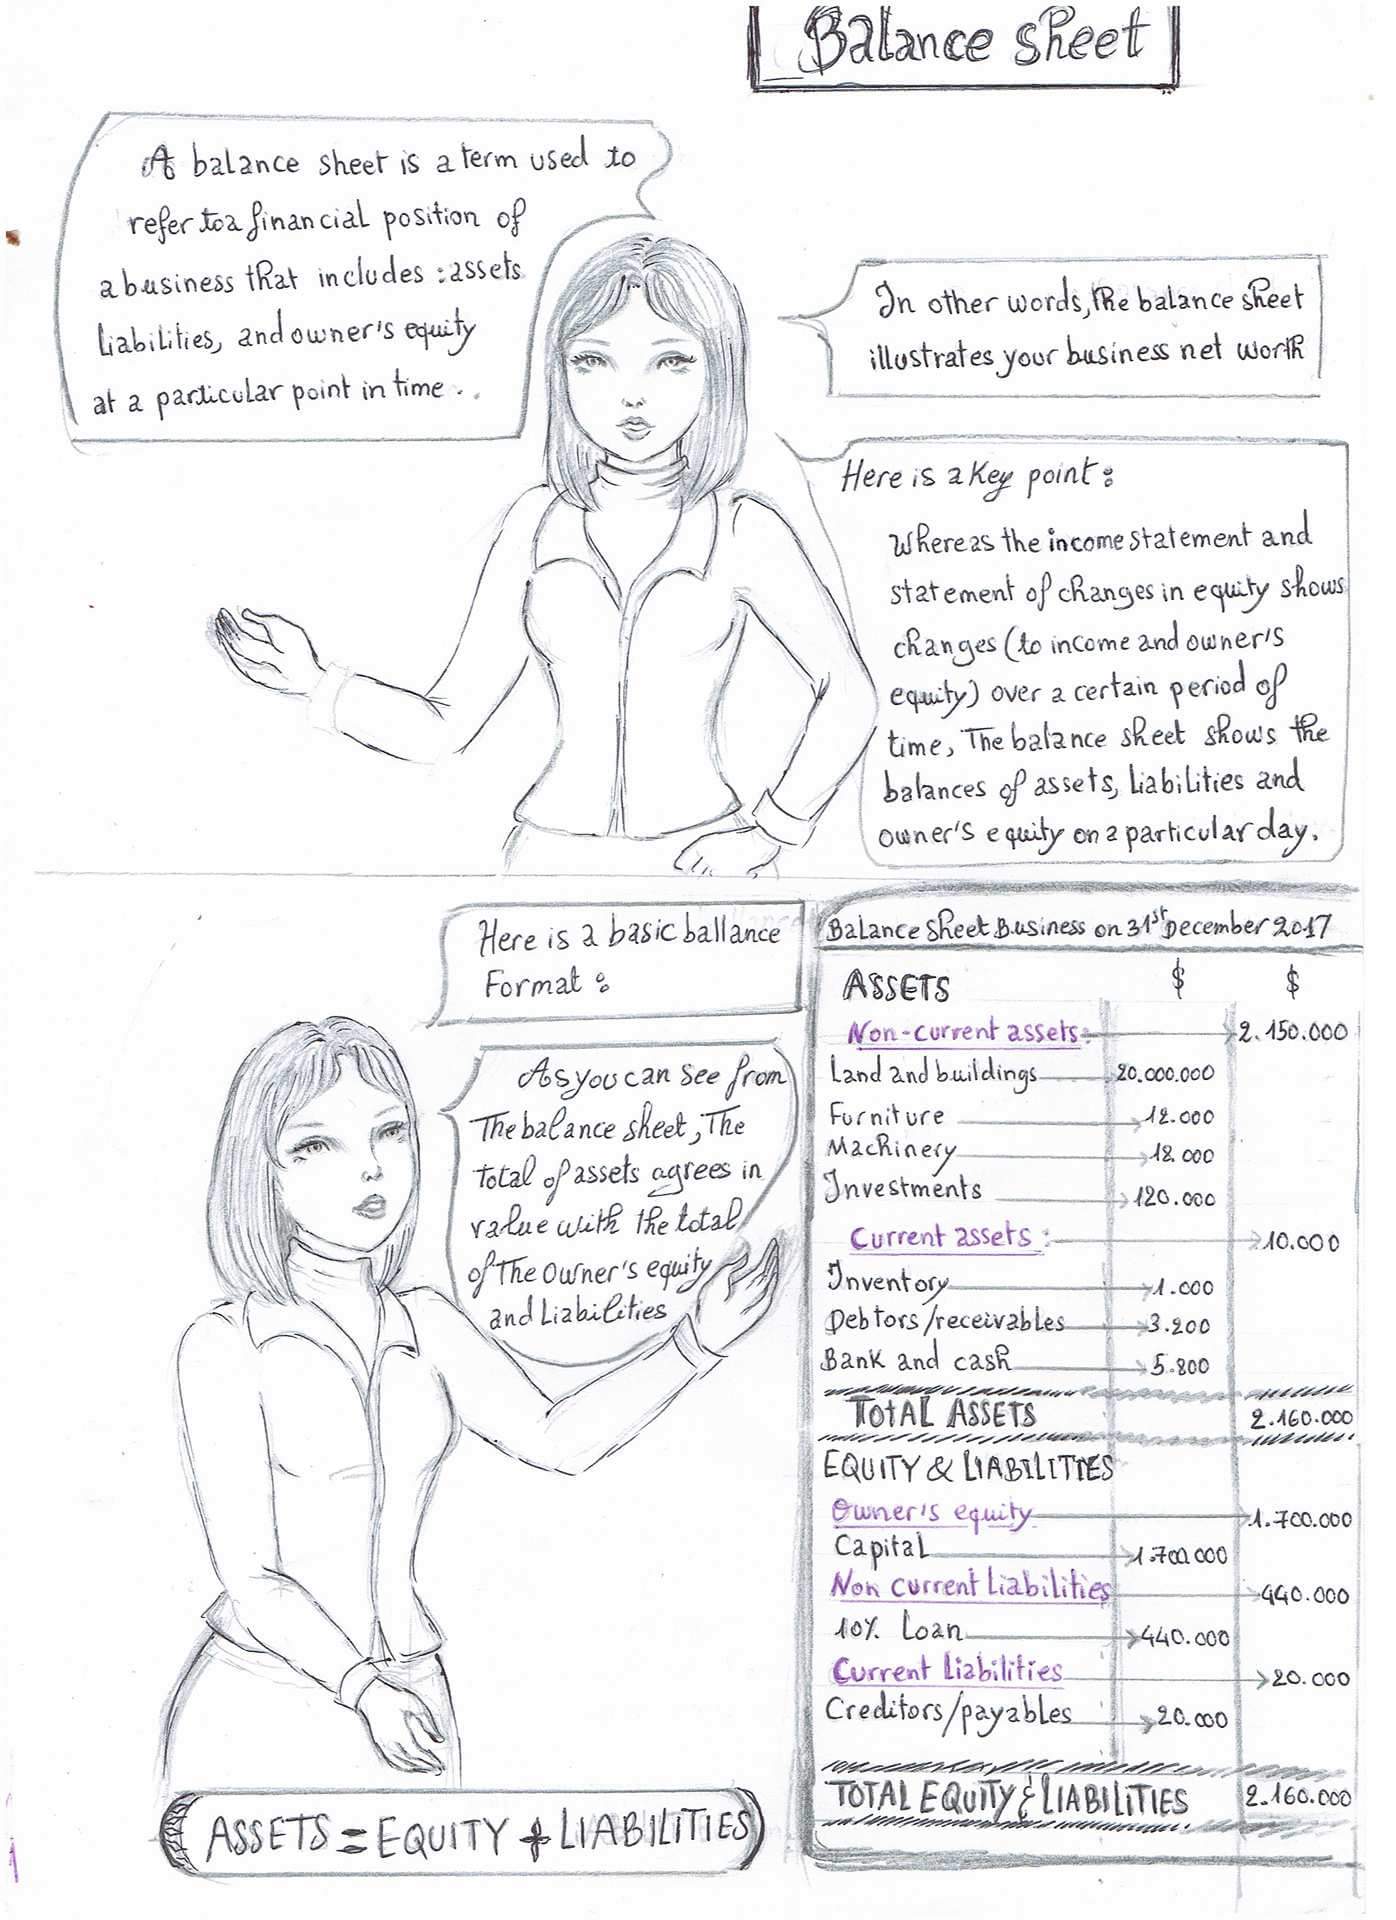 Balance sheet
A balance sheet is a term used to
refer to a financial position of
a business that includes : assets
liabilities, and owner's equity
at a particular point in time .
In other words, the balance sheet
illustrates your business net worth
Here is a Key point :
Whereas the income statement and
statement of changes in equity shows
changes (to income and owner's
equity) over a certain period of
time, The balance sheet shows the
balances of assets, liabilities and
owner's equity on a particular day.
Here is a basic ballance
Format :
As you can see from
The balance sheet, The
total of assets agrees in
value with the total
of The owner's equity
and Liabilities
Balance sheet Business on 31st December 2017
ASSETS $ $
Non-current assets: 2.150.000
Land and buildings 20.000.000
Furniture 12.000
Machinery 18.000
Investments 120.000
Current assets : 10.000
Inventory 1.000
Debtors/receivables 3.200
Bank and cash 5.800
TOTAL ASSETS 2.160.000
EQUITY & LIABILITIES
Owner's equity 1.700.000
Capital 1.700.000
Non current liabilities 440.000
10% Loan 440.000
Current liabilities 20.000
Creditors/payables 20.000
TOTAL EQUITY & LIABILITIES 2.160.000
ASSETS = EQUITY + LIABILITIES